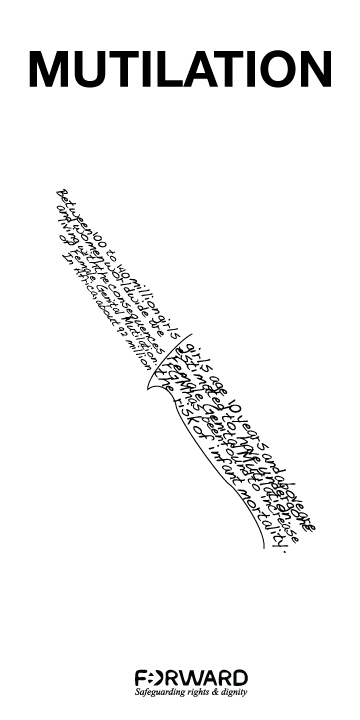 MUTILATION
Between 100 to 140 million girls
and women worldwide are
living with the consequences
of Female Genital Mutilation.
In Africa, about 92 million
girls age 10 years and above are
estimated to have undergone
Female Genital Mutilation.
FGM has been found to increase
the risk of infant mortality.
FORWARD
Safeguarding rights & dignity